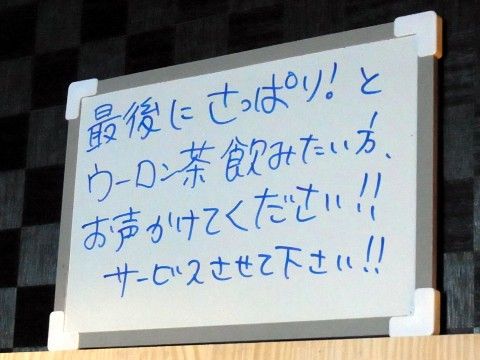 最後にさっぱり!と
ウーロン茶飲みたい方、
お声かけてください!!
サービスさせて下さい!!